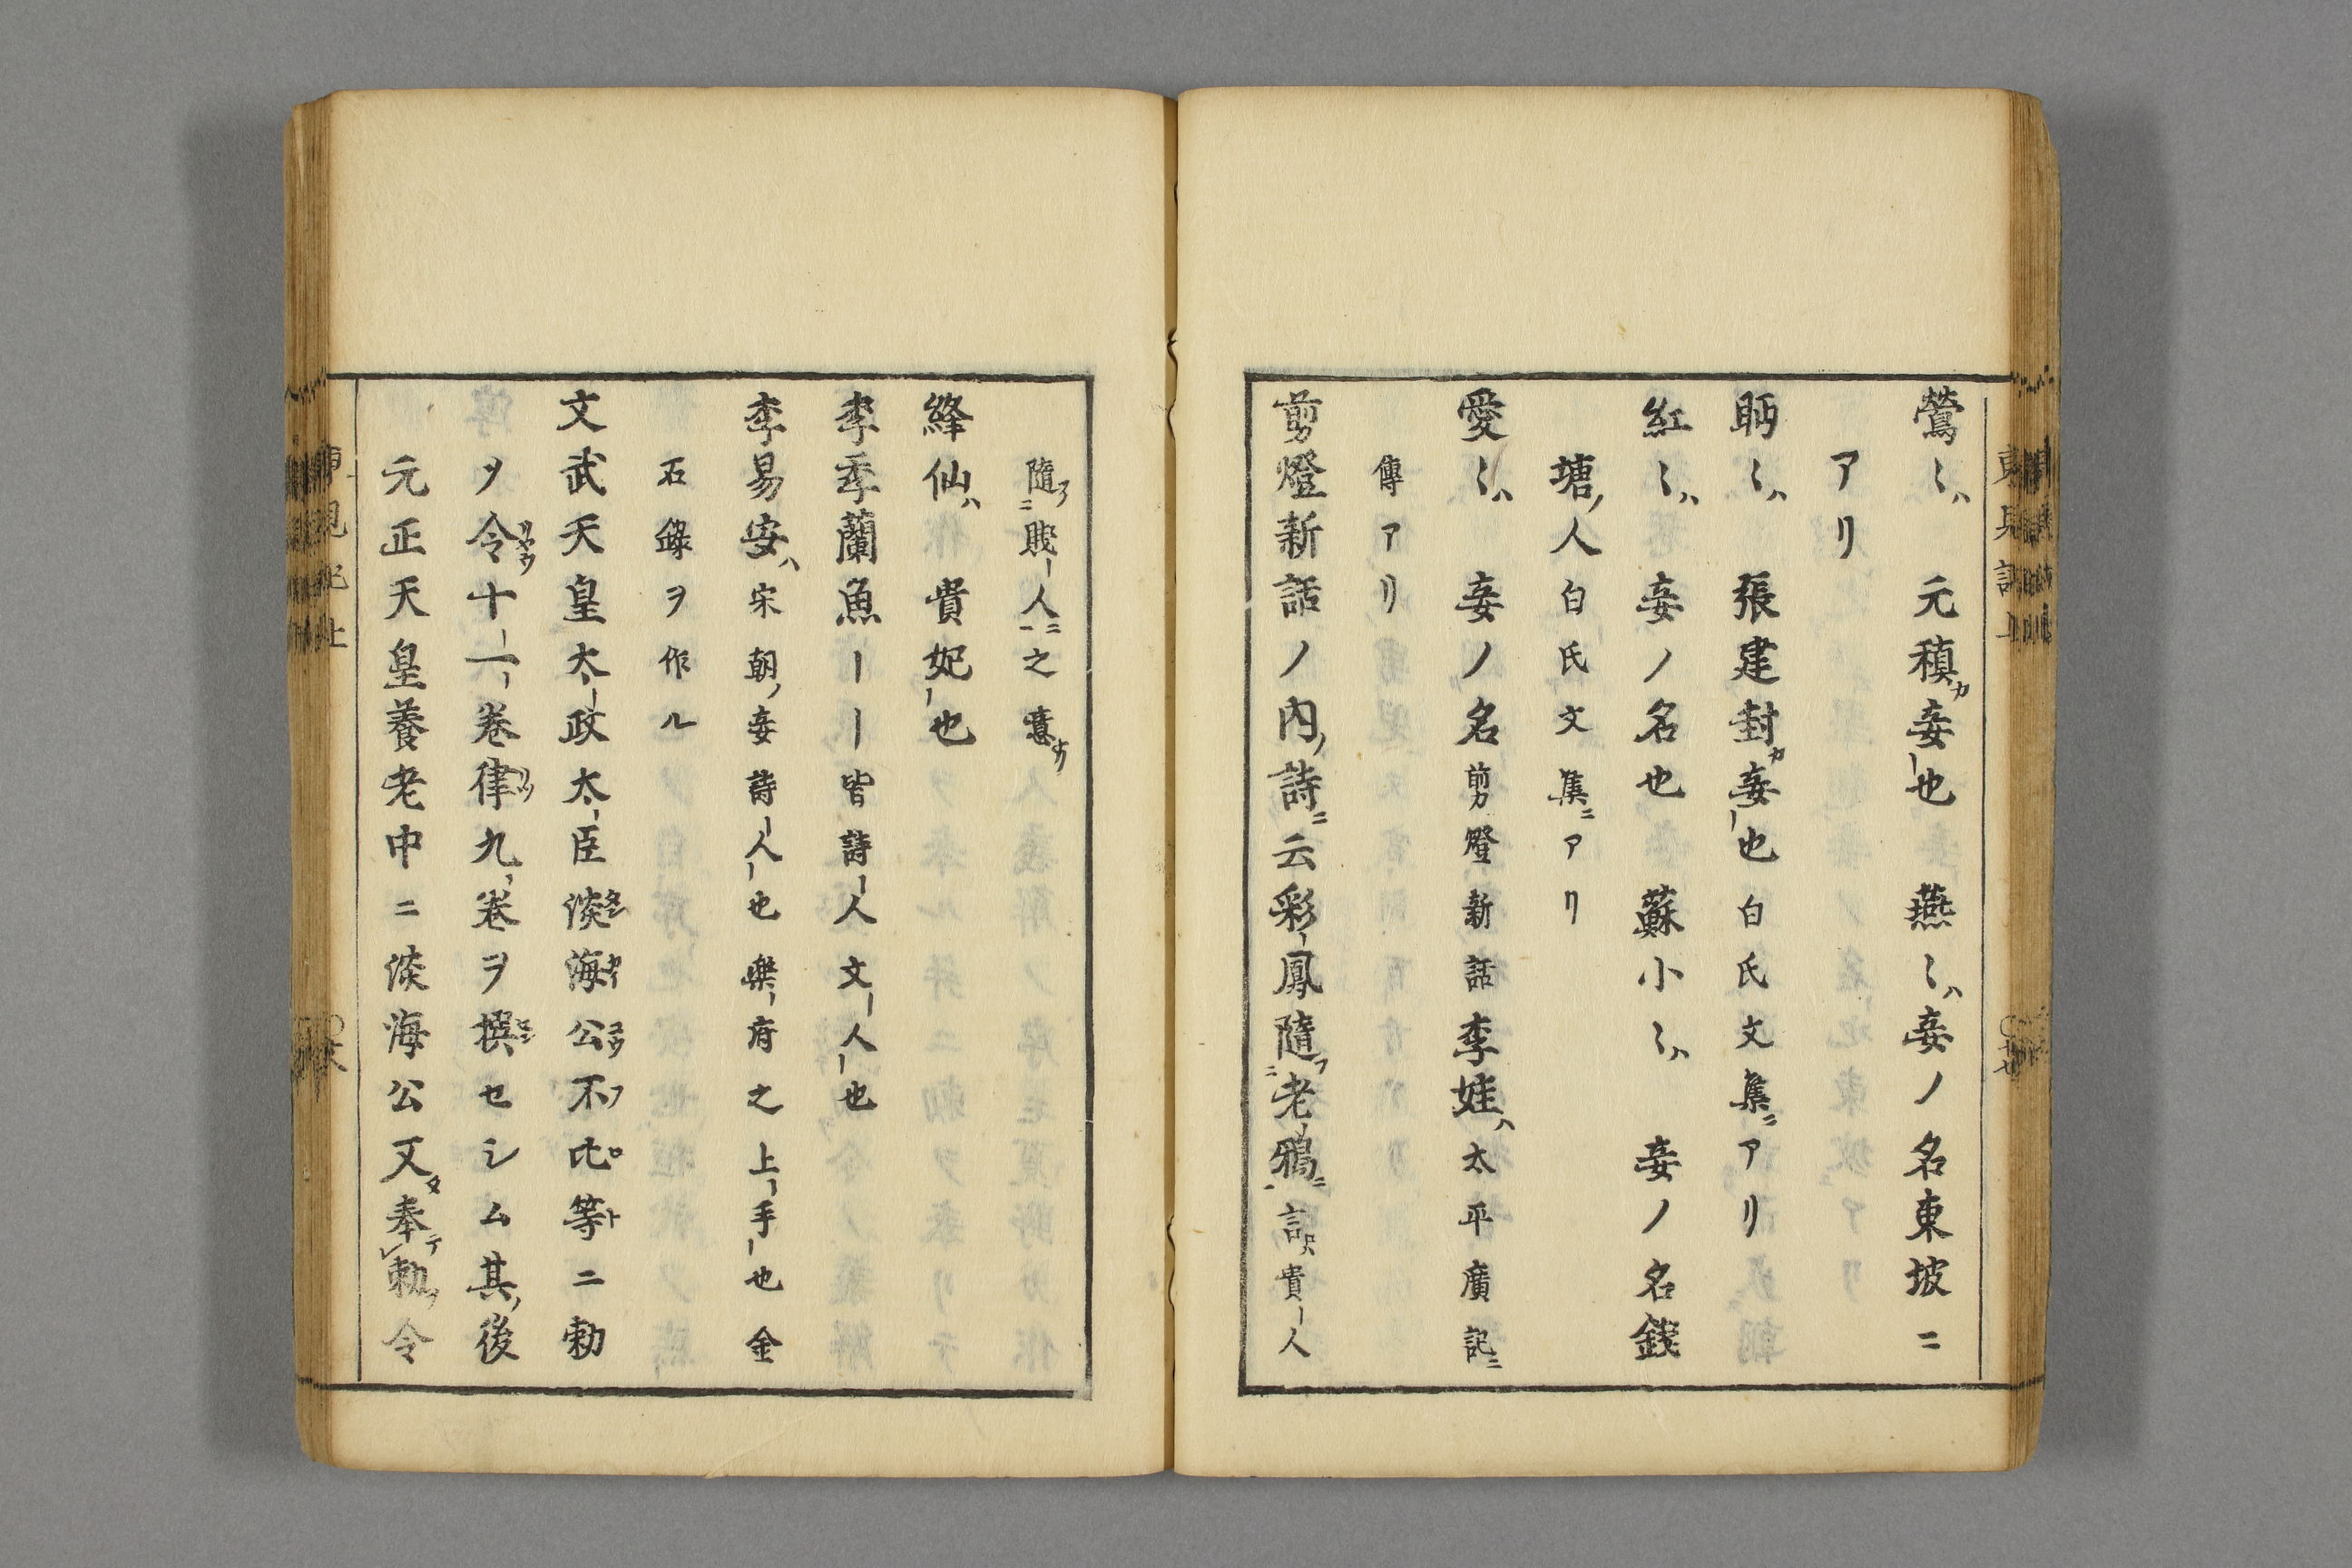 鶯〻ハ 元稹カ妾也 燕〻ハ妾ノ名東坡ニ
アリ
眄〻ハ 張建封カ妾也白氏文集ニアリ
紅〻ハ 妾ノ名也 蘇小〻ハ 妾ノ名錢
塘ノ人白氏文集ニアリ
愛〻ハ 妾ノ名剪燈新話李娃ハ太平廣記ニ
傳アリ
剪燈新話ノ内ノ詩ニ云彩鳳隨フ老鴉ニ言貴人
隨フ賤人ニ之意ナリ
絳仙ハ 貴妃也
李季蘭魚ーー皆詩人文人也
李易安ハ宋朝ノ妾詩人也樂府之上手也金
石錄ヲ作ル
文武天皇太政太臣淡海公不比等ニ勅
ヲ令十一巻律九巻ヲ撰セシム其ノ後
元正天皇養老中ニ淡海公又奉テ勅ヲ令